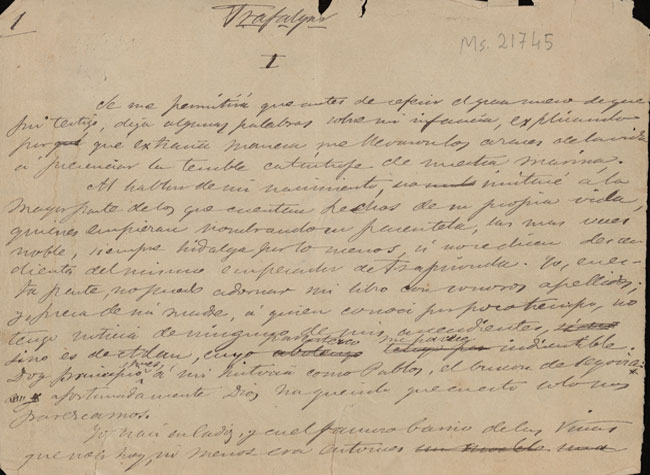 1
Trafalgar
Ms. 21745
I
Se me permitirá que antes de referir el gran suceso de que
fui testigo, diga algunas palabras sobre mi infancia, explicando
por que extraña manera me llevaron los azares de la vida
á presenciar la terrible catástrofe de nuestra marina.
Al hablar de mi nacimiento, no imitaré á la
mayor parte de los que cuentan hechos de su propia vida,
quienes empiezan nombrando su parentela, las mas veces
noble, siempre hidalga por lo menos, si no se dicen descen
dientes del mismo emperador de Trapisonda. Yo, en es-
ta parte, no puedo adornar mi libro con sonoros apellidos;
y fuera de mi madre, á quien conocí por poco tiempo, no
tengo noticia de ninguno de mis ascendientes,
parentesco me parece
sino es de Adan, cuyo abolengo tengo por indiscutible.
Doy principio pues á mi historia como Pablos, el buscon de Segovia:
afortunadamente Dios ha querido que en esto solo nos
parezcamos.
Yo nací en Cadiz, y en el famoso barrio de la Viña
que no es hoy, ni menos era entonces